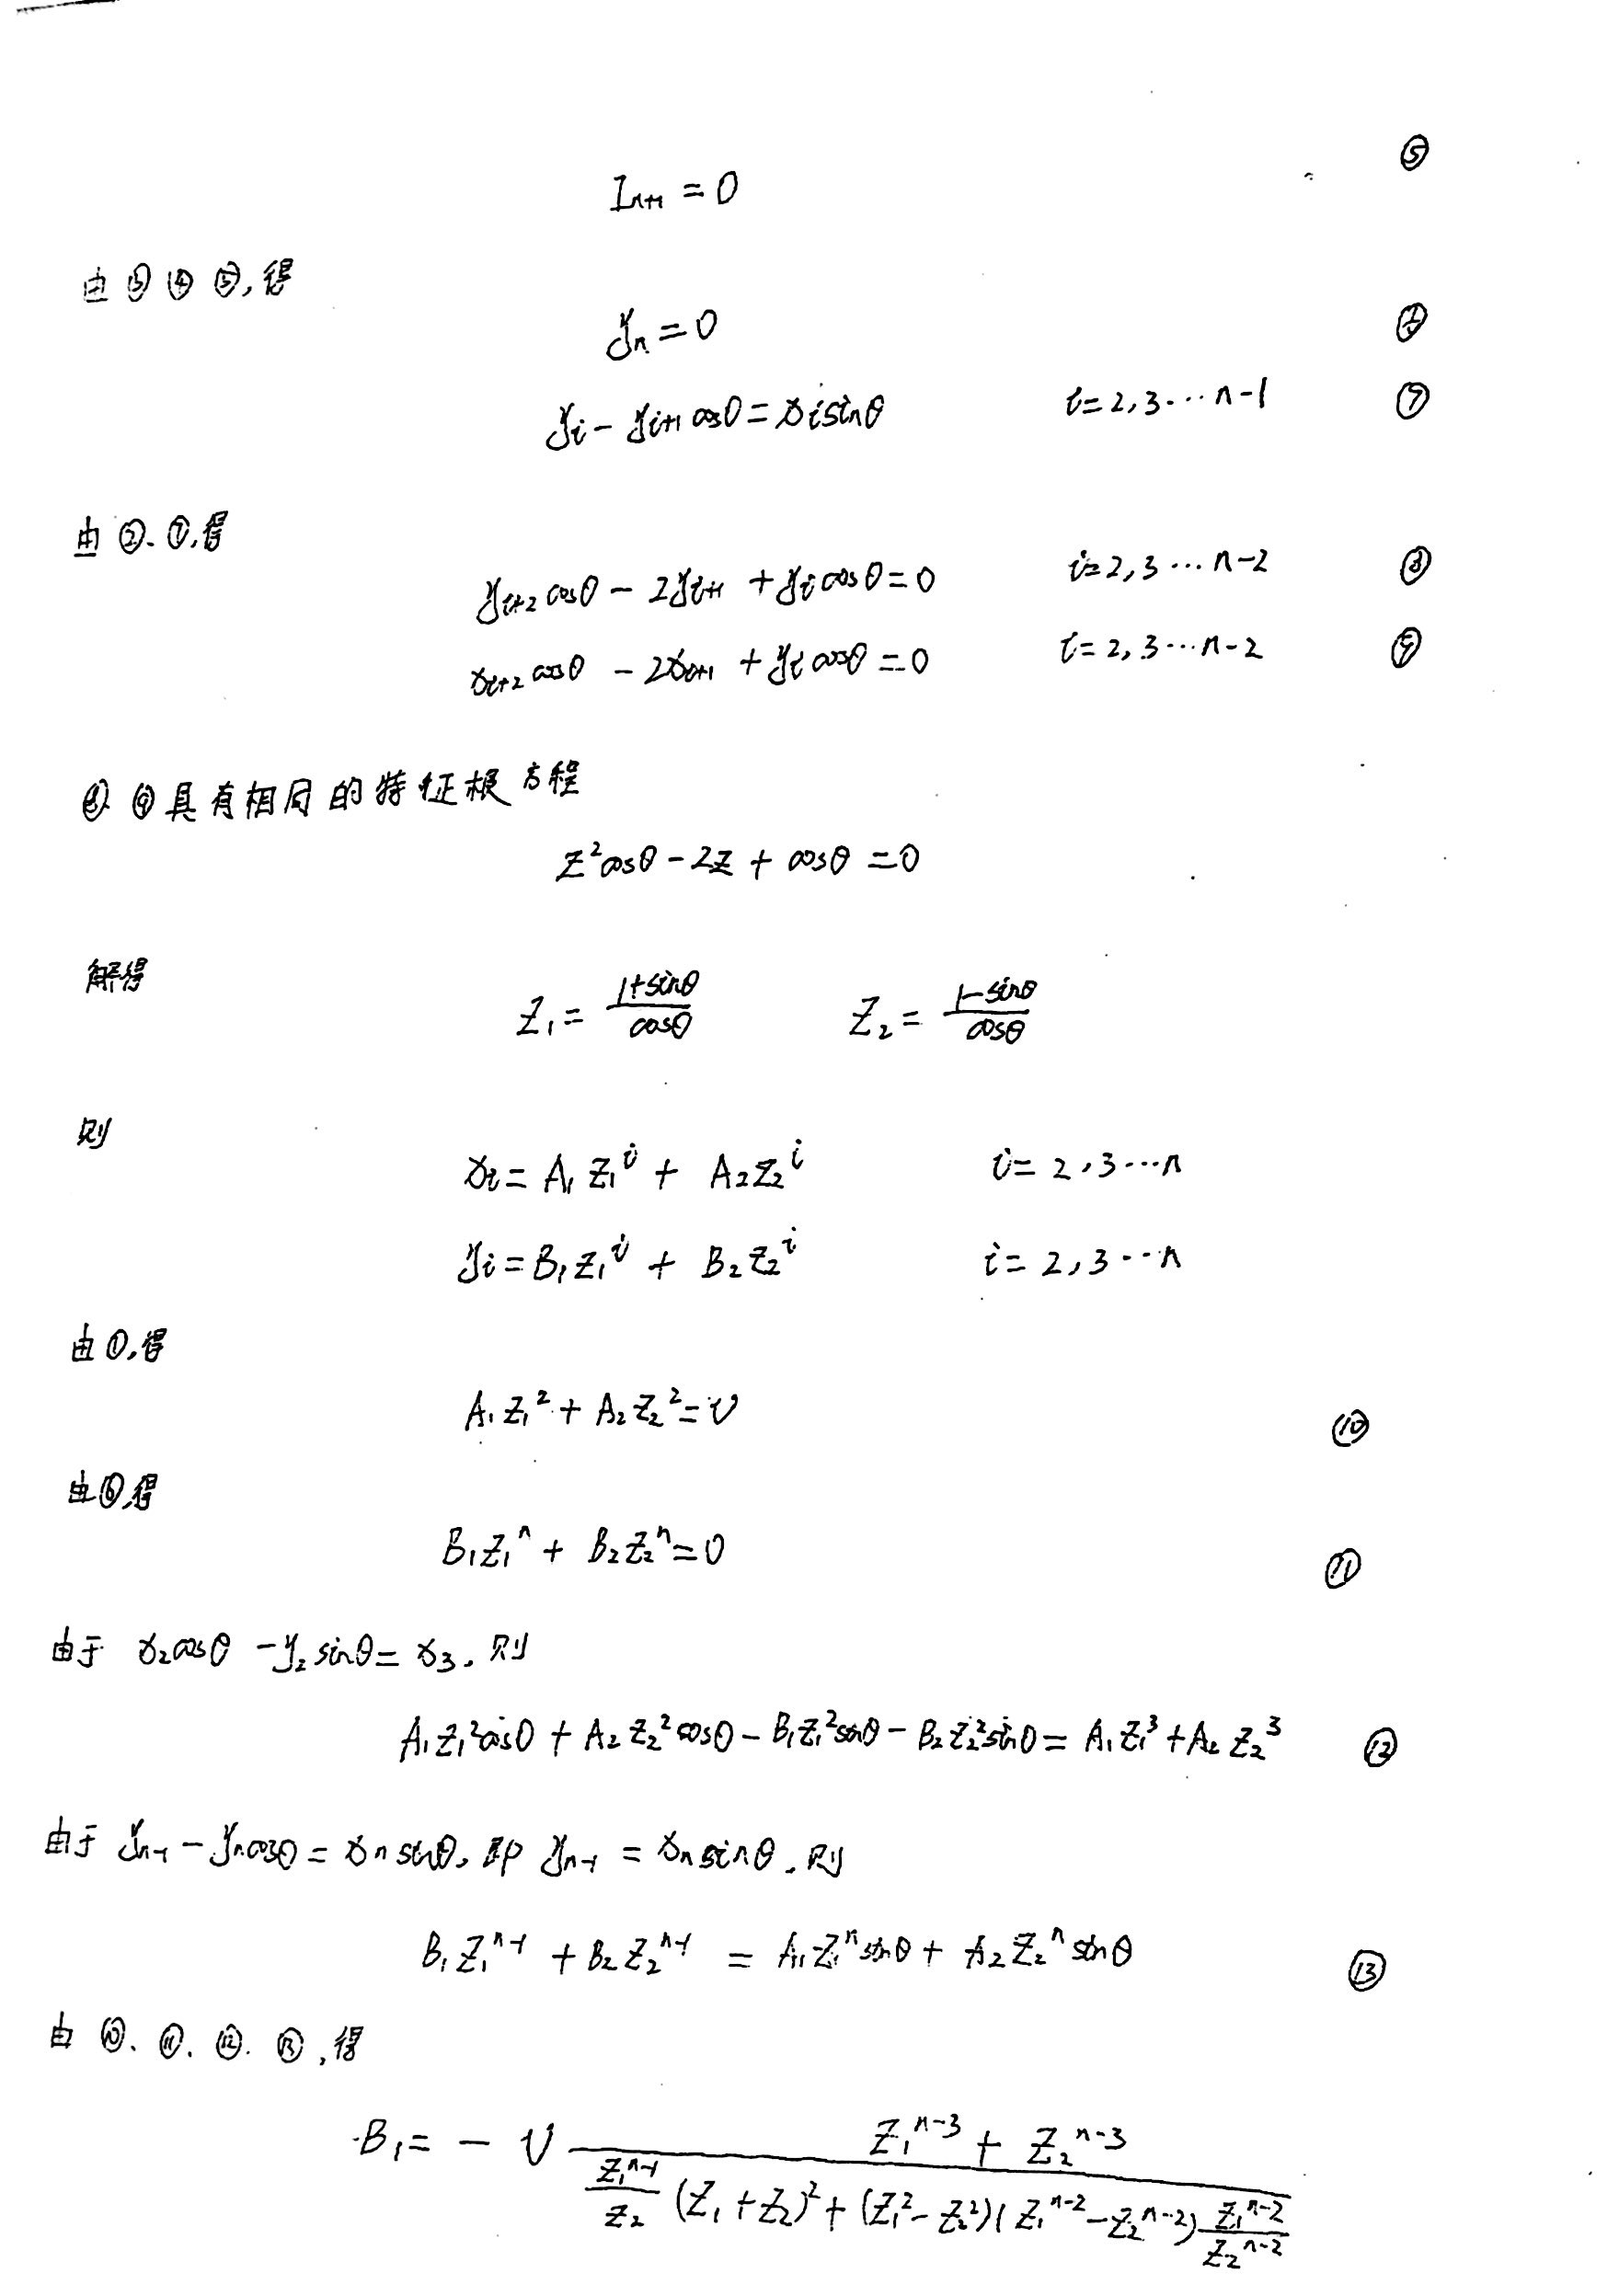 ⑤
I_{n+1} = 0
由③④⑤,得
y_n = 0 ⑥
y_i - y_{i+1} cosθ = x_i sinθ i=2,3⋯n-1 ⑦
由②、⑦,得
y_{i+2} cosθ - 2y_{i+1} + y_i cosθ = 0 i=2,3⋯n-2 ⑧
x_{i+2} cosθ - 2x_{i+1} + y_i cosθ = 0 i=2,3⋯n-2 ⑨
⑧、⑨具有相同的特征根方程
Z²cosθ - 2Z + cosθ = 0
解得
Z₁ = (1+sinθ)/cosθ Z₂ = (1-sinθ)/cosθ
则
x_i = A₁Z₁^i + A₂Z₂^i i=2,3⋯n
y_i = B₁Z₁^i + B₂Z₂^i i=2,3⋯n
由①,得
A₁Z₁² + A₂Z₂² = v ⑩
由⑥,得
B₁Z₁^n + B₂Z₂^n = 0 ⑪
由于 x₂cosθ - y₂sinθ = x₃,则
A₁Z₁²cosθ + A₂Z₂²cosθ - B₁Z₁²sinθ - B₂Z₂²sinθ = A₁Z₁³ + A₂Z₂³ ⑫
由于 y_{n-1} - y_n cosθ = x_n sinθ,即 y_{n-1} = x_n sinθ,则
B₁Z₁^{n-1} + B₂Z₂^{n-1} = A₁Z₁^n sinθ + A₂Z₂^n sinθ ⑬
由⑩、⑪、⑫、⑬,得
B₁ = -v (Z₁^{n-3} + Z₂^{n-3}) / ((Z₁^{n-1}/Z₂)(Z₁+Z₂)² + (Z₁²-Z₂²)(Z₁^{n-2}-Z₂^{n-2}) Z₁^{n-2}/Z₂^{n-2})